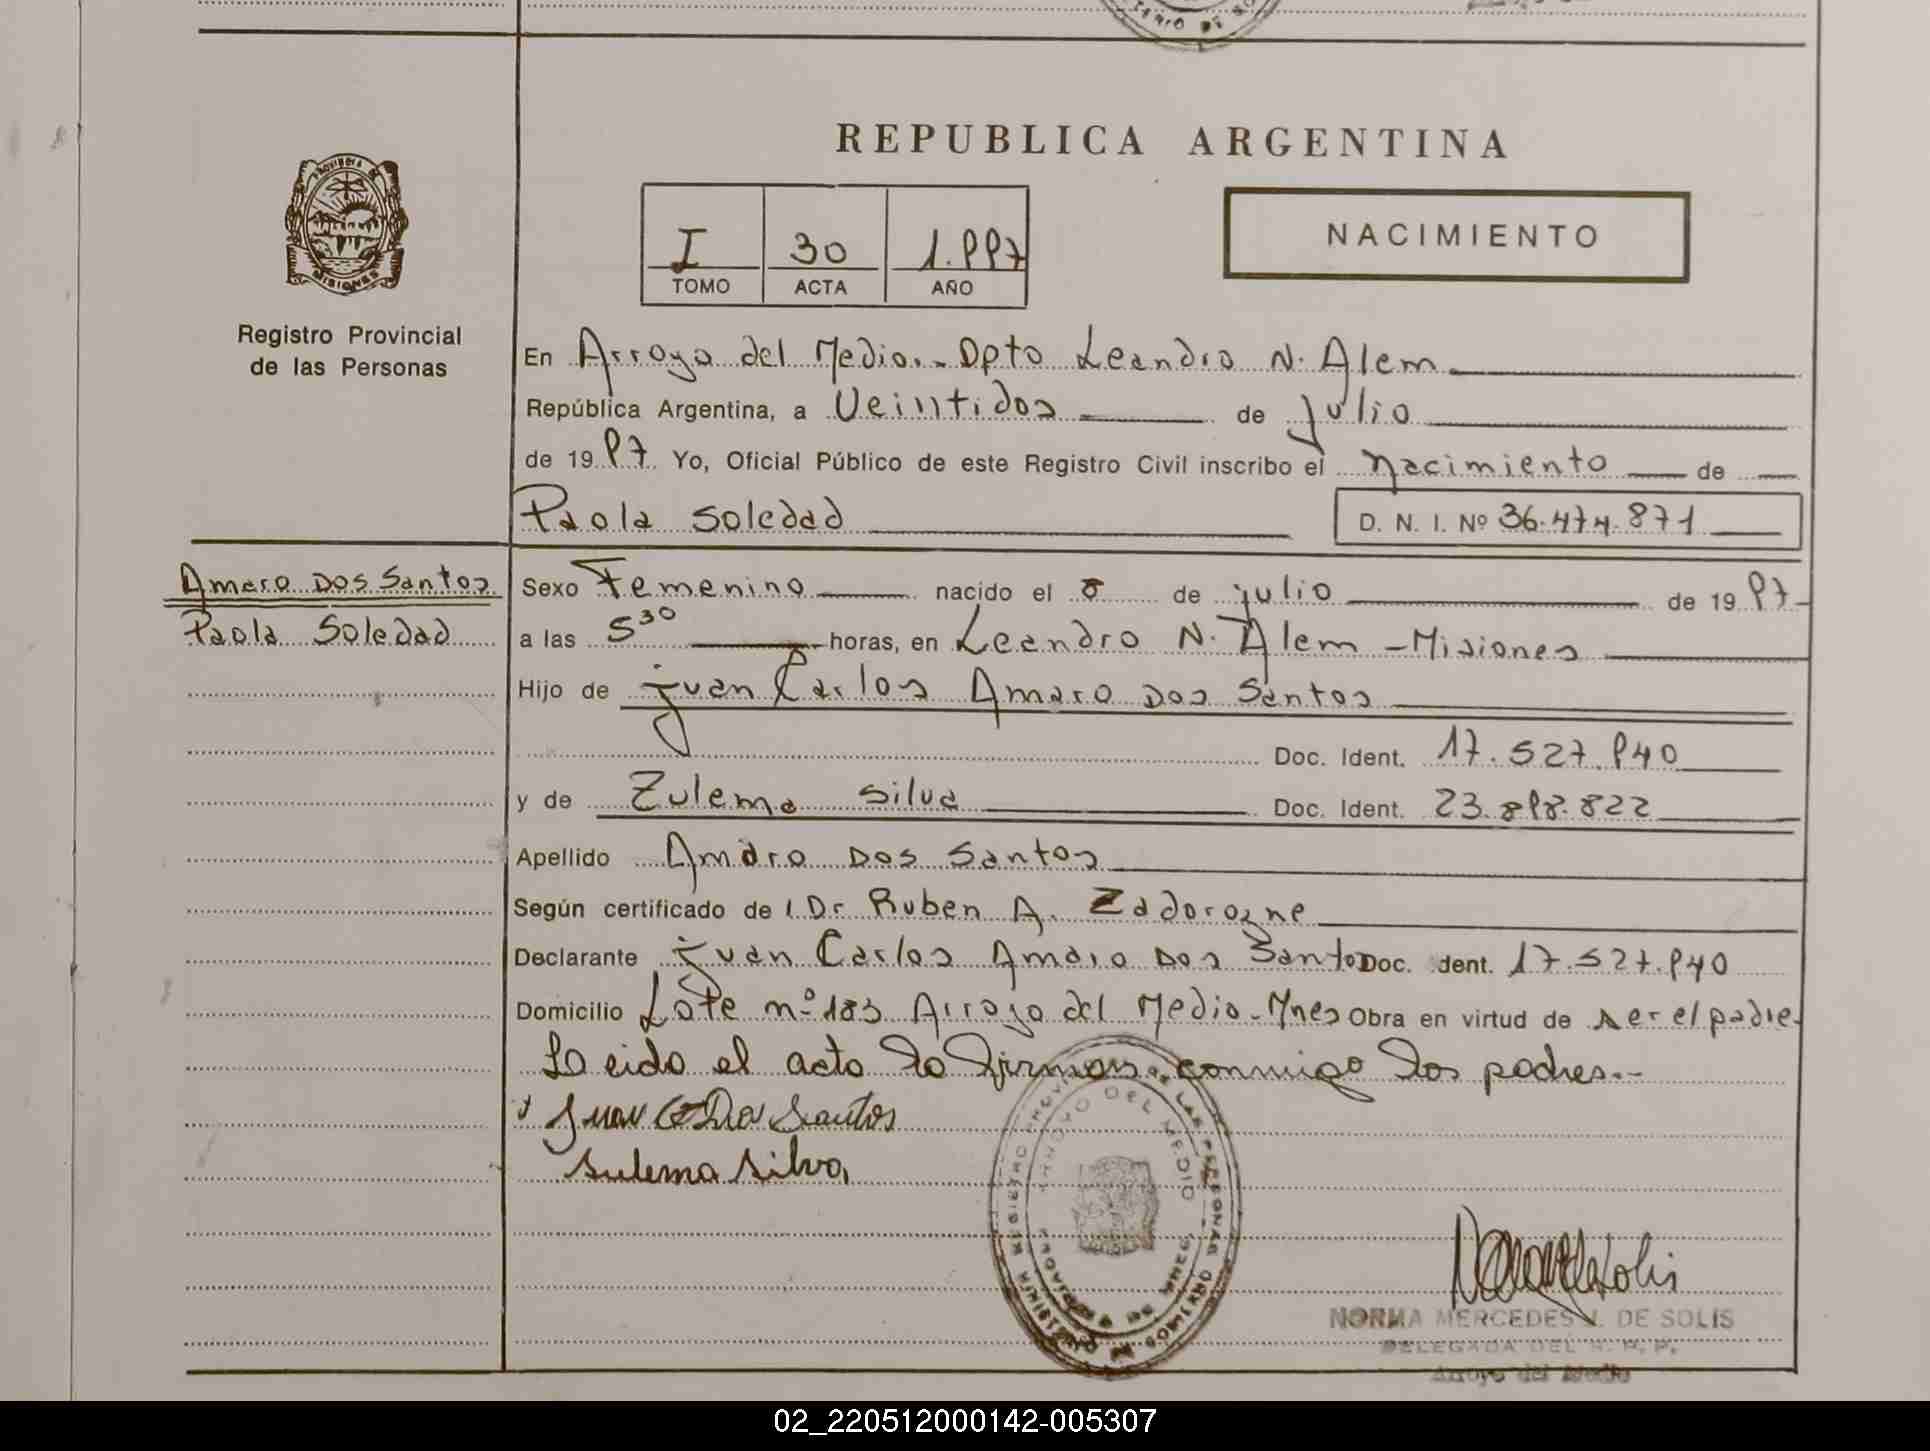 REPUBLICA ARGENTINA
PROVINCIA DE
MISIONES
Registro Provincial
de las Personas
I 30 1.997
TOMO ACTA AÑO
NACIMIENTO
En Arroyo del Medio.- Dpto Leandro N. Alem
República Argentina, a Veintidos de julio
de 1997 Yo, Oficial Público de este Registro Civil inscribo el nacimiento de
Paola Soledad D. N. I. Nº 36.474.871
Amaro Dos Santos
Paola Soledad
Sexo Femenino nacido el 8 de julio de 1997
a las 5 30 horas, en Leandro N. Alem - Misiones
Hijo de juan Carlos Amaro Dos Santos
Doc. Ident. 17.527.940
y de Zulema Silva Doc. Ident. 23.898.822
Apellido Amaro Dos Santos
Según certificado de l Dr Ruben A. Zadorozne
Declarante juan Carlos Amaro Dos Santos Doc. dent. 17.527.940
Domicilio Lote nº 183 Arroyo del Medio - Mnes Obra en virtud de ser el padre.
Leido el acto lo firman conmigo los padres.-
Juan C Dos Santos
Sulema Silva
ARROYO DEL MEDIO
NORMA MERCEDES V. DE SOLIS
DELEGADA DEL R. P. P.
Arroyo del Medio
02_220512000142-005307